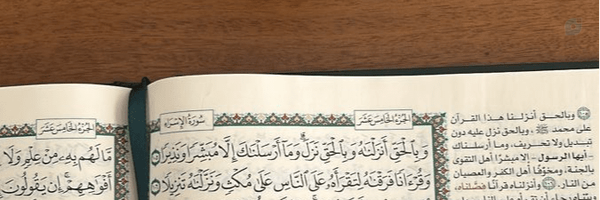 الجزء الخامس عشر
سورة الإسراء
وَبِٱلْحَقِّ أَنزَلْنَٰهُ وَبِٱلْحَقِّ نَزَلَ ۗ وَمَآ أَرْسَلْنَٰكَ إِلَّا مُبَشِّرًا وَنَذِيرًا
وَقُرْءَانًا فَرَقْنَٰهُ لِتَقْرَأَهُۥ عَلَى ٱلنَّاسِ عَلَىٰ مُكْثٍ وَنَزَّلْنَٰهُ تَنزِيلًا
وبالحق أنزلنا هذا القرآن
على محمد ﷺ، وبالحق نزل عليه دون
تبديل ولا تحريف، وما أرسلناك
-أيها الرسول- إلا مبشرًا أهل التقوى
بالجنة، ومخوّفًا أهل الكفر والعصيان
من النار. وأنزلناه قرآنًا فصّلناه
الجزء الخامس عشر
مَّا لَهُم بِهِۦ مِنْ عِلْمٍ وَلَا
أَفْوَٰهِهِمْ ۚ إِن يَقُولُونَ